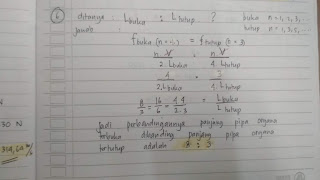 ditanya : L buka : L tutup ? buka n = 1, 2, 3, ..
Jawab : tutup n = 1, 3, 5, ..
f buka (n = ) = f tutup (n = 3)
n. V = n. V
2. L buka 4. L tutup
4 = 3
2. L buka 4. L tutup
= 16 = 4.4 = L buka
L tutup
Jadi perbandingannya panjang pipa organa
terbuka dibanding panjang pipa organa
tertutup adalah
30 N